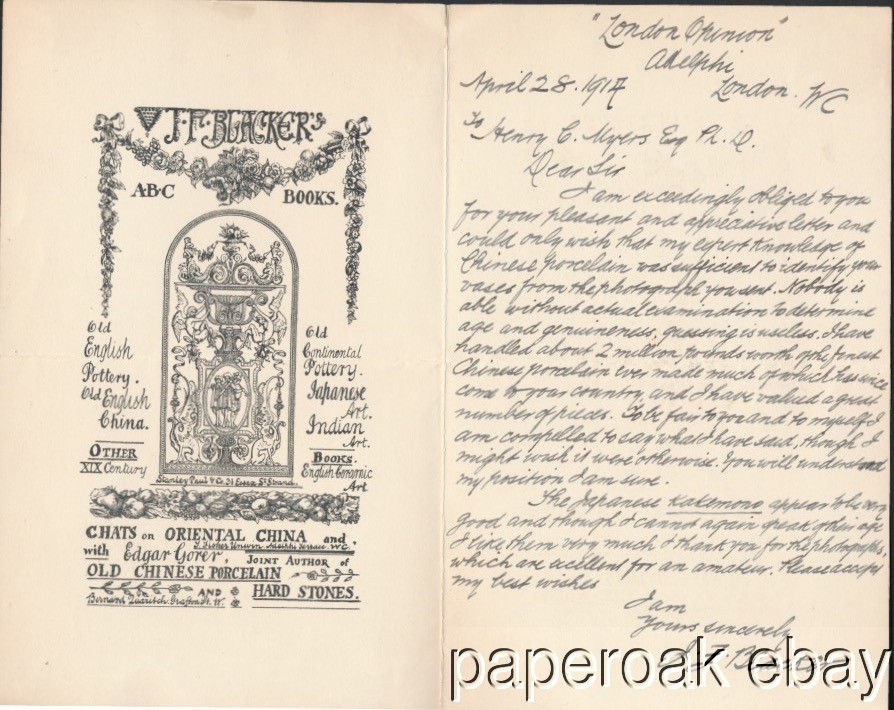 J.F. BLACKER'S
A·B·C BOOKS.
Old
English
Pottery.
Old English
China.
OTHER
XIX Century
Old
Continental
Pottery.
Japanese
Art.
Indian
Art.
BOOKS.
English Ceramic
Art
Stanley Paul & Co. 31 Essex St. Strand.
CHATS on ORIENTAL CHINA and
T. Fisher Unwin. Adelphi Terrace. W.C.
with Edgar Gorer, JOINT AUTHOR of
OLD CHINESE PORCELAIN
AND HARD STONES.
Bernard Quaritch. Grafton St. W.
"London Opinion"
Adelphi
April 28. 1917 London. WC
To Henry C. Myers Esq Ph. D.
Dear Sir
I am exceedingly obliged to you
for your pleasant and appreciative letter and
could only wish that my expert knowledge of
Chinese porcelain was sufficient to identify your
vases from the photograph you sent. Nobody is
able without actual examination to determine
age and genuineness, guessing is useless. I have
handled about 2 million pounds worth of the finest
Chinese porcelain ever made much of which has since
come to your country, and I have valued a great
number of pieces. To be fair to you and to myself I
am compelled to say what I have said, though I
might wish it were otherwise. You will understand
my position I am sure.
The Japanese kakemono appear to be very
good and though I cannot again speak of their age
I like them very much. I thank you for the photographs,
which are excellent for an amateur. Please accept
my best wishes
I am
Yours sincerely
J. F. Blacker
paperoak ebay